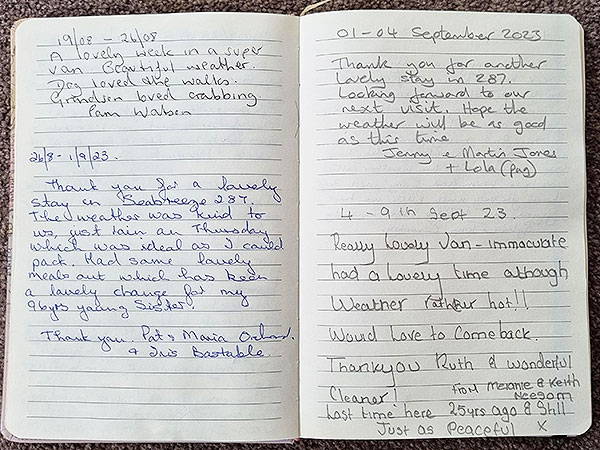 19/08 - 26/08
A lovely week in a super
van. Beautiful weather.
Dog loved the walks.
Grandson loved crabbing
Pam
26/8 - 1/9/23.
Thank you for a lovely
stay in Seabreeze 287.
The weather was kind to
us, just rain on Thursday
which was ideal as I could
pack. Had some lovely
meals out which has been
a lovely change for my
96yrs young Sister.
Thank you. Pat & Maria
& Iris Bastable.
01-04 September 2023
Thank you for another
lovely stay in 287.
Looking forward to our
next visit. Hope the
weather will be as good
as this time
Jenny & Martin Jones
+ Lola (pug)
4 - 9th Sept 23.
Really Lovely Van - Immaculate
had a lovely time although
Weather rather hot!!
Would Love to Comeback.
Thankyou Ruth & wonderful
Cleaner!
From Melanie & Keith
Neesam
Last time here 25yrs ago & Still
Just as Peaceful X